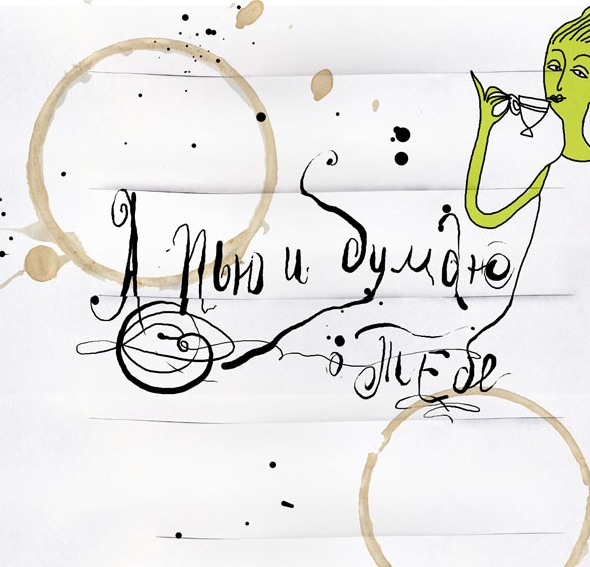 Я пью и думаю
о тебе